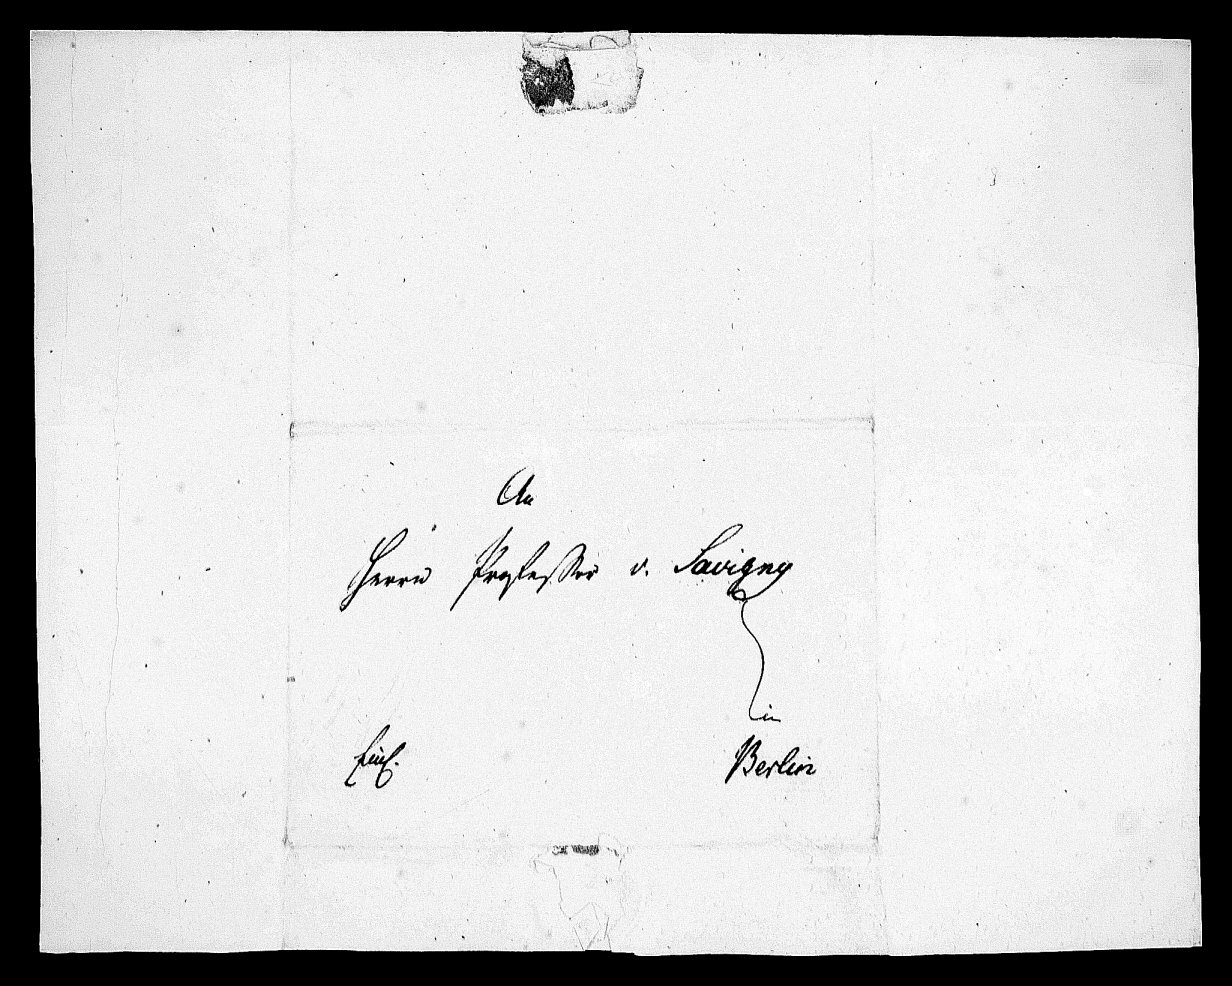 An
Herrn Professor v. Savigny
in
Berlin